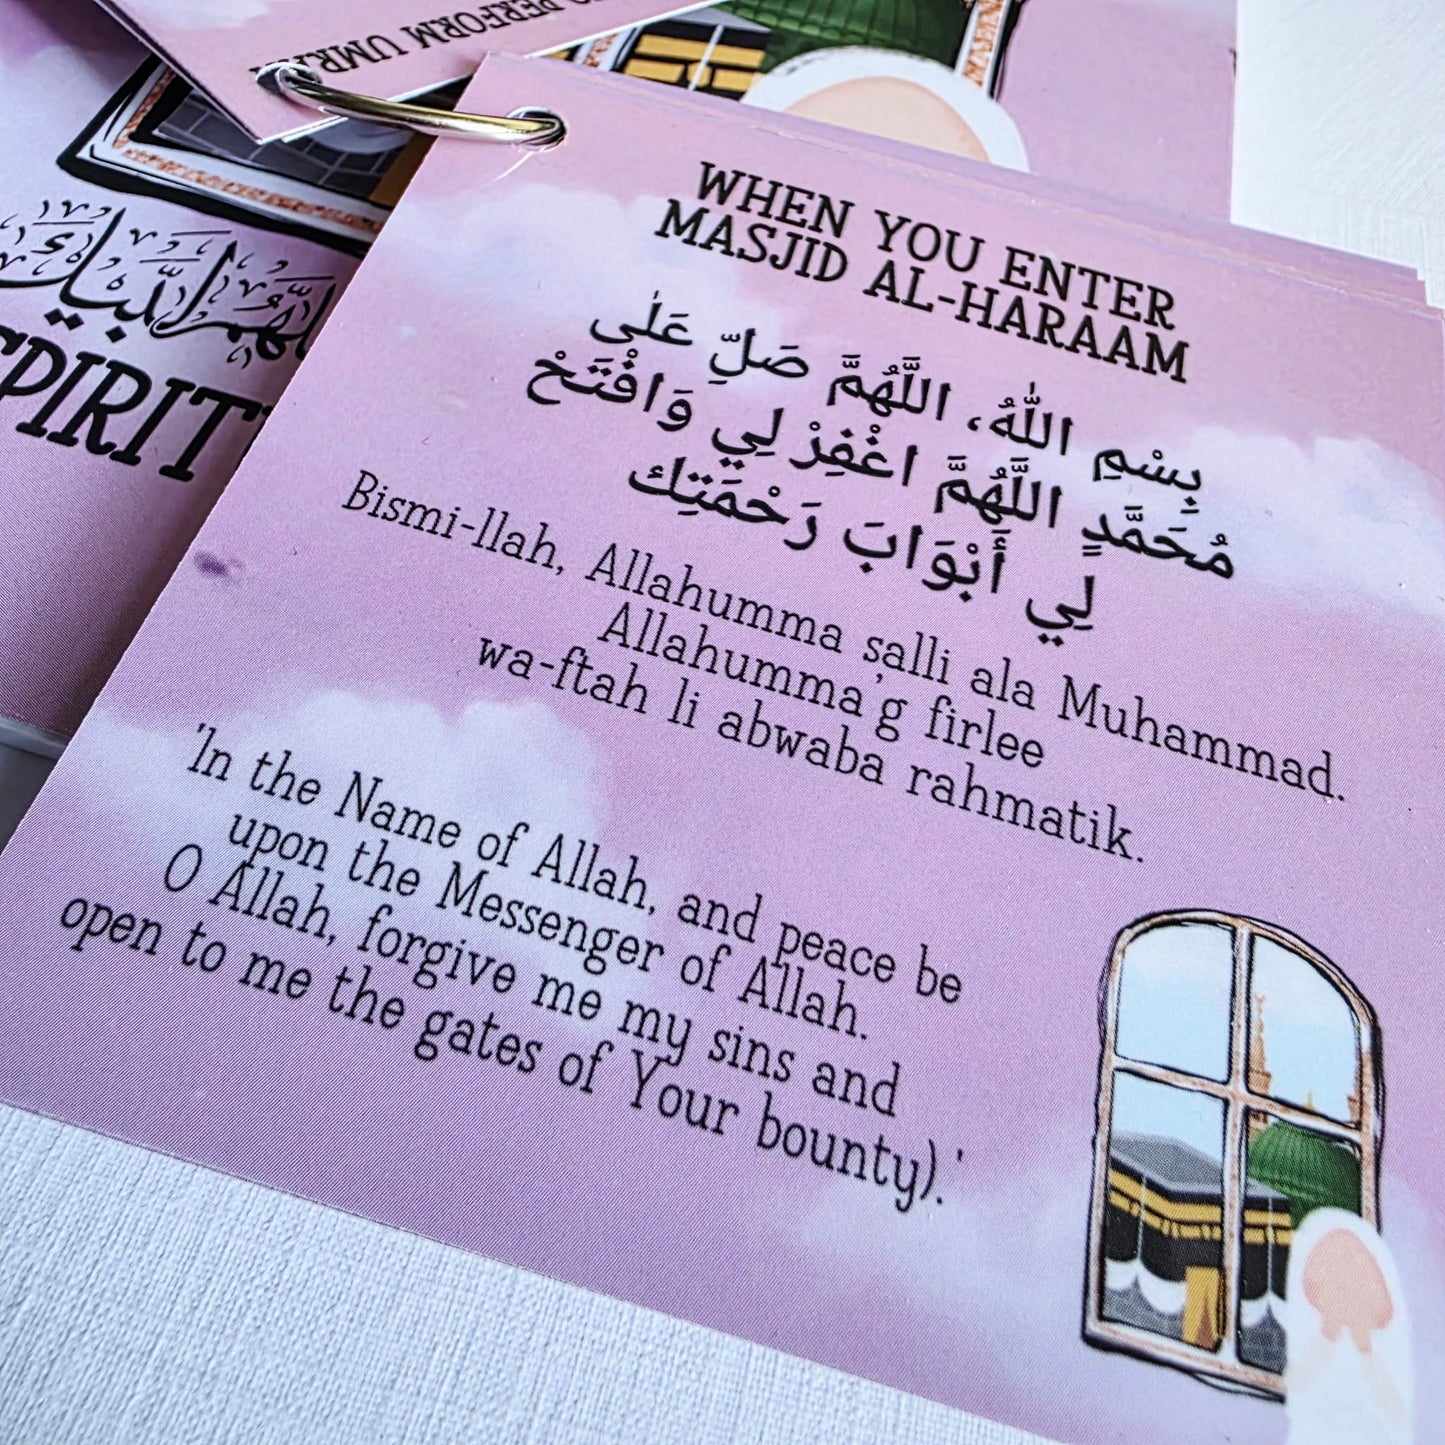 TO PERFORM UMR
اللَّهُمَّ لَبَّيْكَ
SPIRIT
WHEN YOU ENTER
MASJID AL-HARAAM
بِسْمِ اللّٰهُ، اللَّهُمَّ صَلِّ عَلٰى
مُحَمَّدٍ اللَّهُمَّ اغْفِرْ لِي وَافْتَحْ
لِي أَبْوَابَ رَحْمَتِك
Bismi-llah, Allahumma ṣalli ala Muhammad.
Allahumma'g firlee
wa-ftah li abwaba rahmatik.
'In the Name of Allah, and peace be
upon the Messenger of Allah.
O Allah, forgive me my sins and
open to me the gates of Your bounty).'